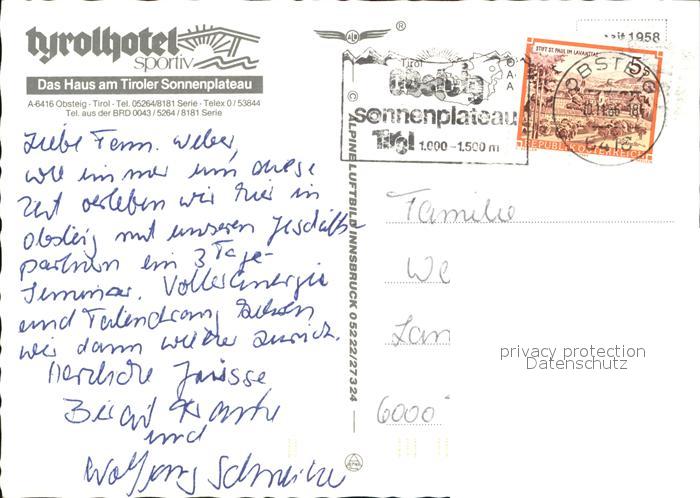 tyrolhotel
sportiv
Das Haus am Tiroler Sonnenplateau
A-6416 Obsteig · Tirol · Tel. 05264/8181 Serie · Telex 0 / 53844
Tel. aus der BRD 0043 / 5264 / 8181 Serie
Liebe Fam. Weber,
wie immer um diese
Zeit verleben wir hier in
Obsteig mit unseren Geschäfts
partnern ein 3 Tage-
Seminar. Voller Energie
und Tatendrang
wir dann wieder zurück.
Herzliche Grüsse
Birgit
und
Wolfgang
© ALPINE LUFTBILD INNSBRUCK 05222/27324
®
seit 1958
Tirol
Obsteig
sonnenplateau
Tirol 1.000 – 1.500 m
STIFT ST. PAUL IM LAVANTTAL
5S
REPUBLIK ÖSTERREICH
OBSTEIG
6416
Familie
We
Lan
6000
privacy protection
Datenschutz